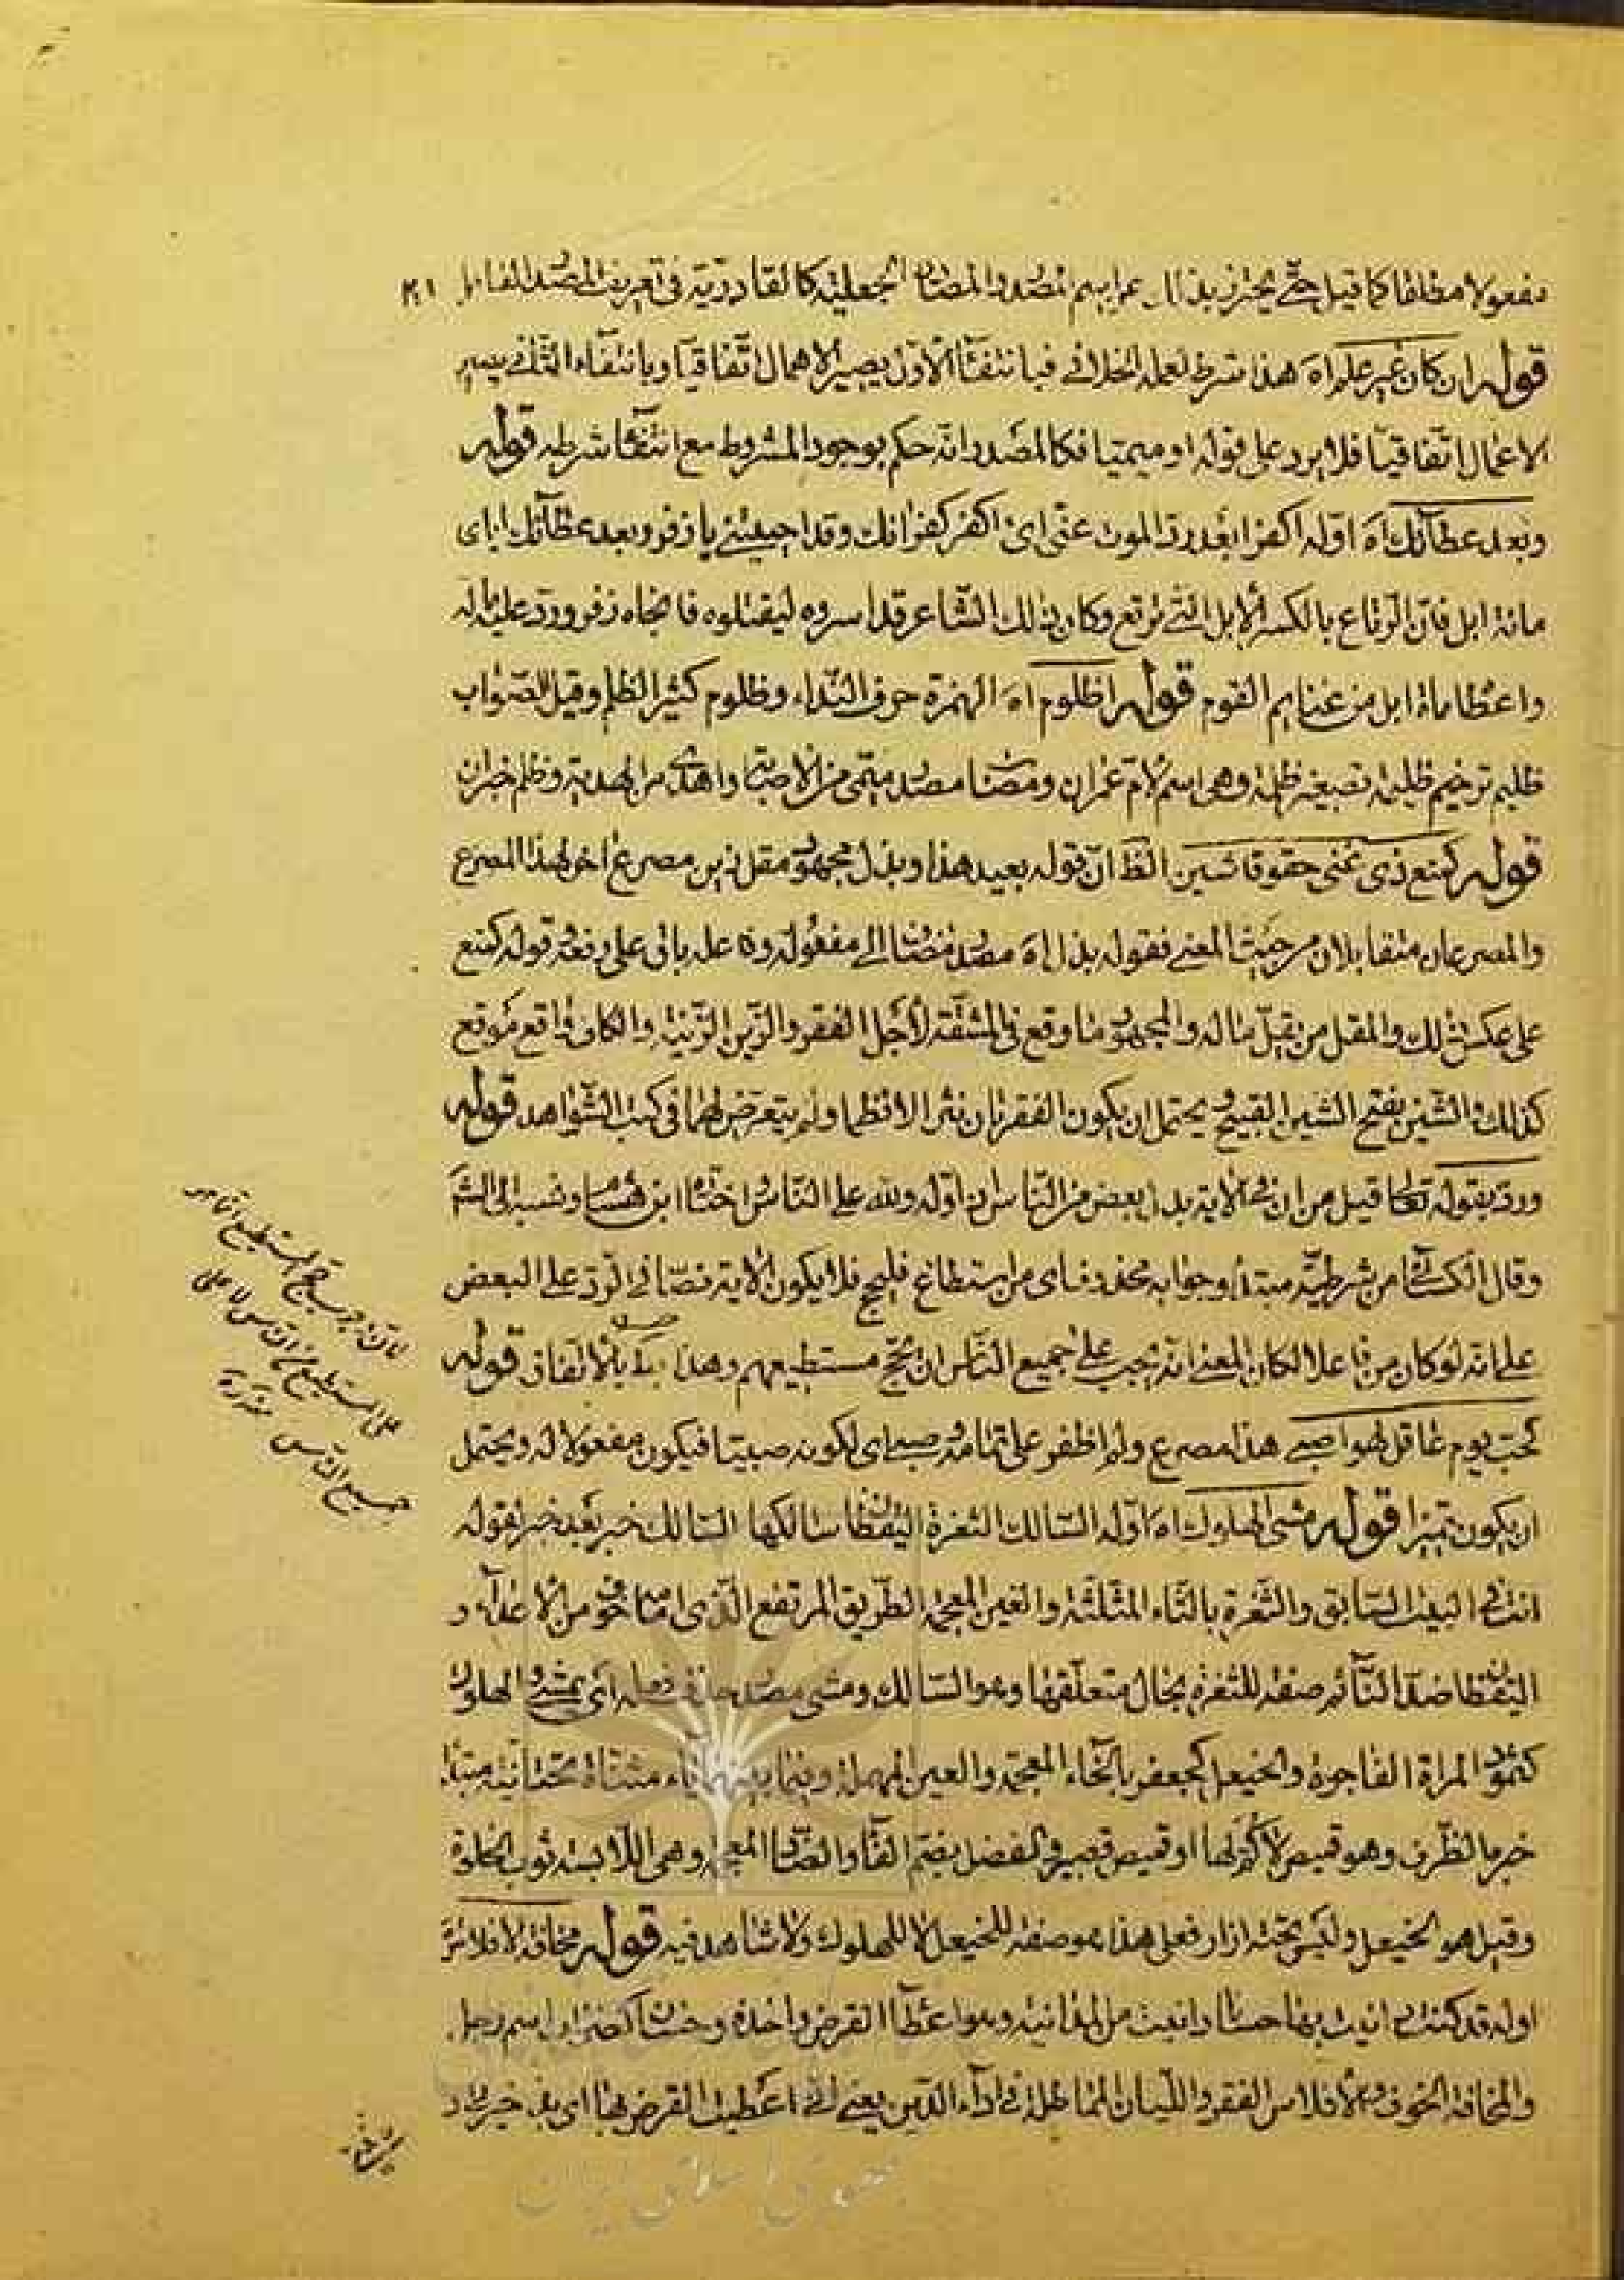 مفعولا مطلقا كما قيل حتى يحترز بذلك عن اسم المصدر والمصادر الجعلية كالقادرية في تعريف المصدر
قوله ان كان غير علم اه هذا شرط لعمله الخلافي فبانتفاء الاول يصير الاهمال اتفاقيا وبانتفاء الثاني يصير
الاعمال اتفاقيا فلا يرد على قوله او ميميا فكالمصدر انه حكم بوجود المشروط مع انتفاء شرطه قوله
وبعد عطائك اه اوله اكفرا بعد رد الموت عنى اى اكفر كفرانك وقد احييتني يا زفر وبعد عطائك اياى
مائة ابل فان الرتاع بالكسر الابل التي ترتع وكان ذلك الشاعر قد اسروه ليقتلوه فانجاه زفر ورد عليه ماله
واعطاه مائة ابل من غنايم القوم قوله اظلوم اه الهمزة حرف النداء وظلوم كثير الظلم وقيل الصواب
ظليم ترخيم ظليمة تصغير ظلمة وهى اسم لام عمران ومصاب مصدر ميمى من الاصابة واهدى من الهدية وظلم خبر ان
قوله كمنع ذى غنى حقوقا شين الظ ان قوله بعيد هذا وبذل مجهود مقل زين مصرع اخر لهذا المصرع
والمصرعان متقابلان من حيث المعنى فقوله بذل اه مصدر مضاف الى مفعوله وفاعله باق على رفعه قوله كمنع
على عكس ذلك والمقل من يقل ماله والمجهود ما وقع في المشقة لاجل الفقر والزين الزينة والكاف واقع موقع
كذلك والشين بفتح الشين القبيح ويحتمل ان يكون الفقرتان نثرا لا نظما ولم يتعرض لهما في كتب الشواهد قوله
ورد بقوله تعالى قيل من ان في الاية بدل بعض من الناس في اوله ولله على الناس اختاره ابن هشام ونسبه الى
وقال الكسائى من شرطية مبتدأ وجوابه محذوف اى من استطاع فليحج فلا يكون الاية نصا في الرد على البعض
على انه لو كان من فاعلا لكان المعنى انه يجب على جميع الناس ان يحج مستطيعهم وهذا بط بالاتفاق قوله
تحت يوم غافل لهوا صبى هذا مصرع ولم اظفر على تمامه صبى اى لكونه صبيا فيكون مفعولا له ويحتمل
ان يكون تميزا قوله مشى الهلوك اه اوله السالك الثغرة اليقظان سالكها السالك خبر بعد خبر لقوله
انت في البيت السابق والثغرة بالثاء المثلثة والغين المعجمة الطريق المرتفع الذى من الاعداء و
اليقظان ضد النائم صفة للثغرة بحال متعلقها وهو السالك ومشى مصدر حذف فعله اى يمشى والهلوك
كثمود المراة الفاجرة والخيعل كجعفر بالخاء المعجمة والعين المهملة وفيما بينهما ياء مثناة تحتانية مبتدا
خبره الظرف وهو قميص لا كم لها او قميص قصير والفضل بضم الفاء والضاد المعجمة وهى اللابسة ثوب الخلوة
وقيل هو الخيعل وليس تحته ازار فعلى هذا هو صفة للخيعل لا للهلوك ولا شاهد فيه قوله مخافة الافلاس
اوله قد كنت داينت بها حسانا داينت من المداينة وهو اعطاء القرض واخذه وحسان اسم رجل
والمخافة الخوف والافلاس الفقر والليان المماطلة في اداء الدين يعنى انى اعطيت القرض بها اى
جميع الناس